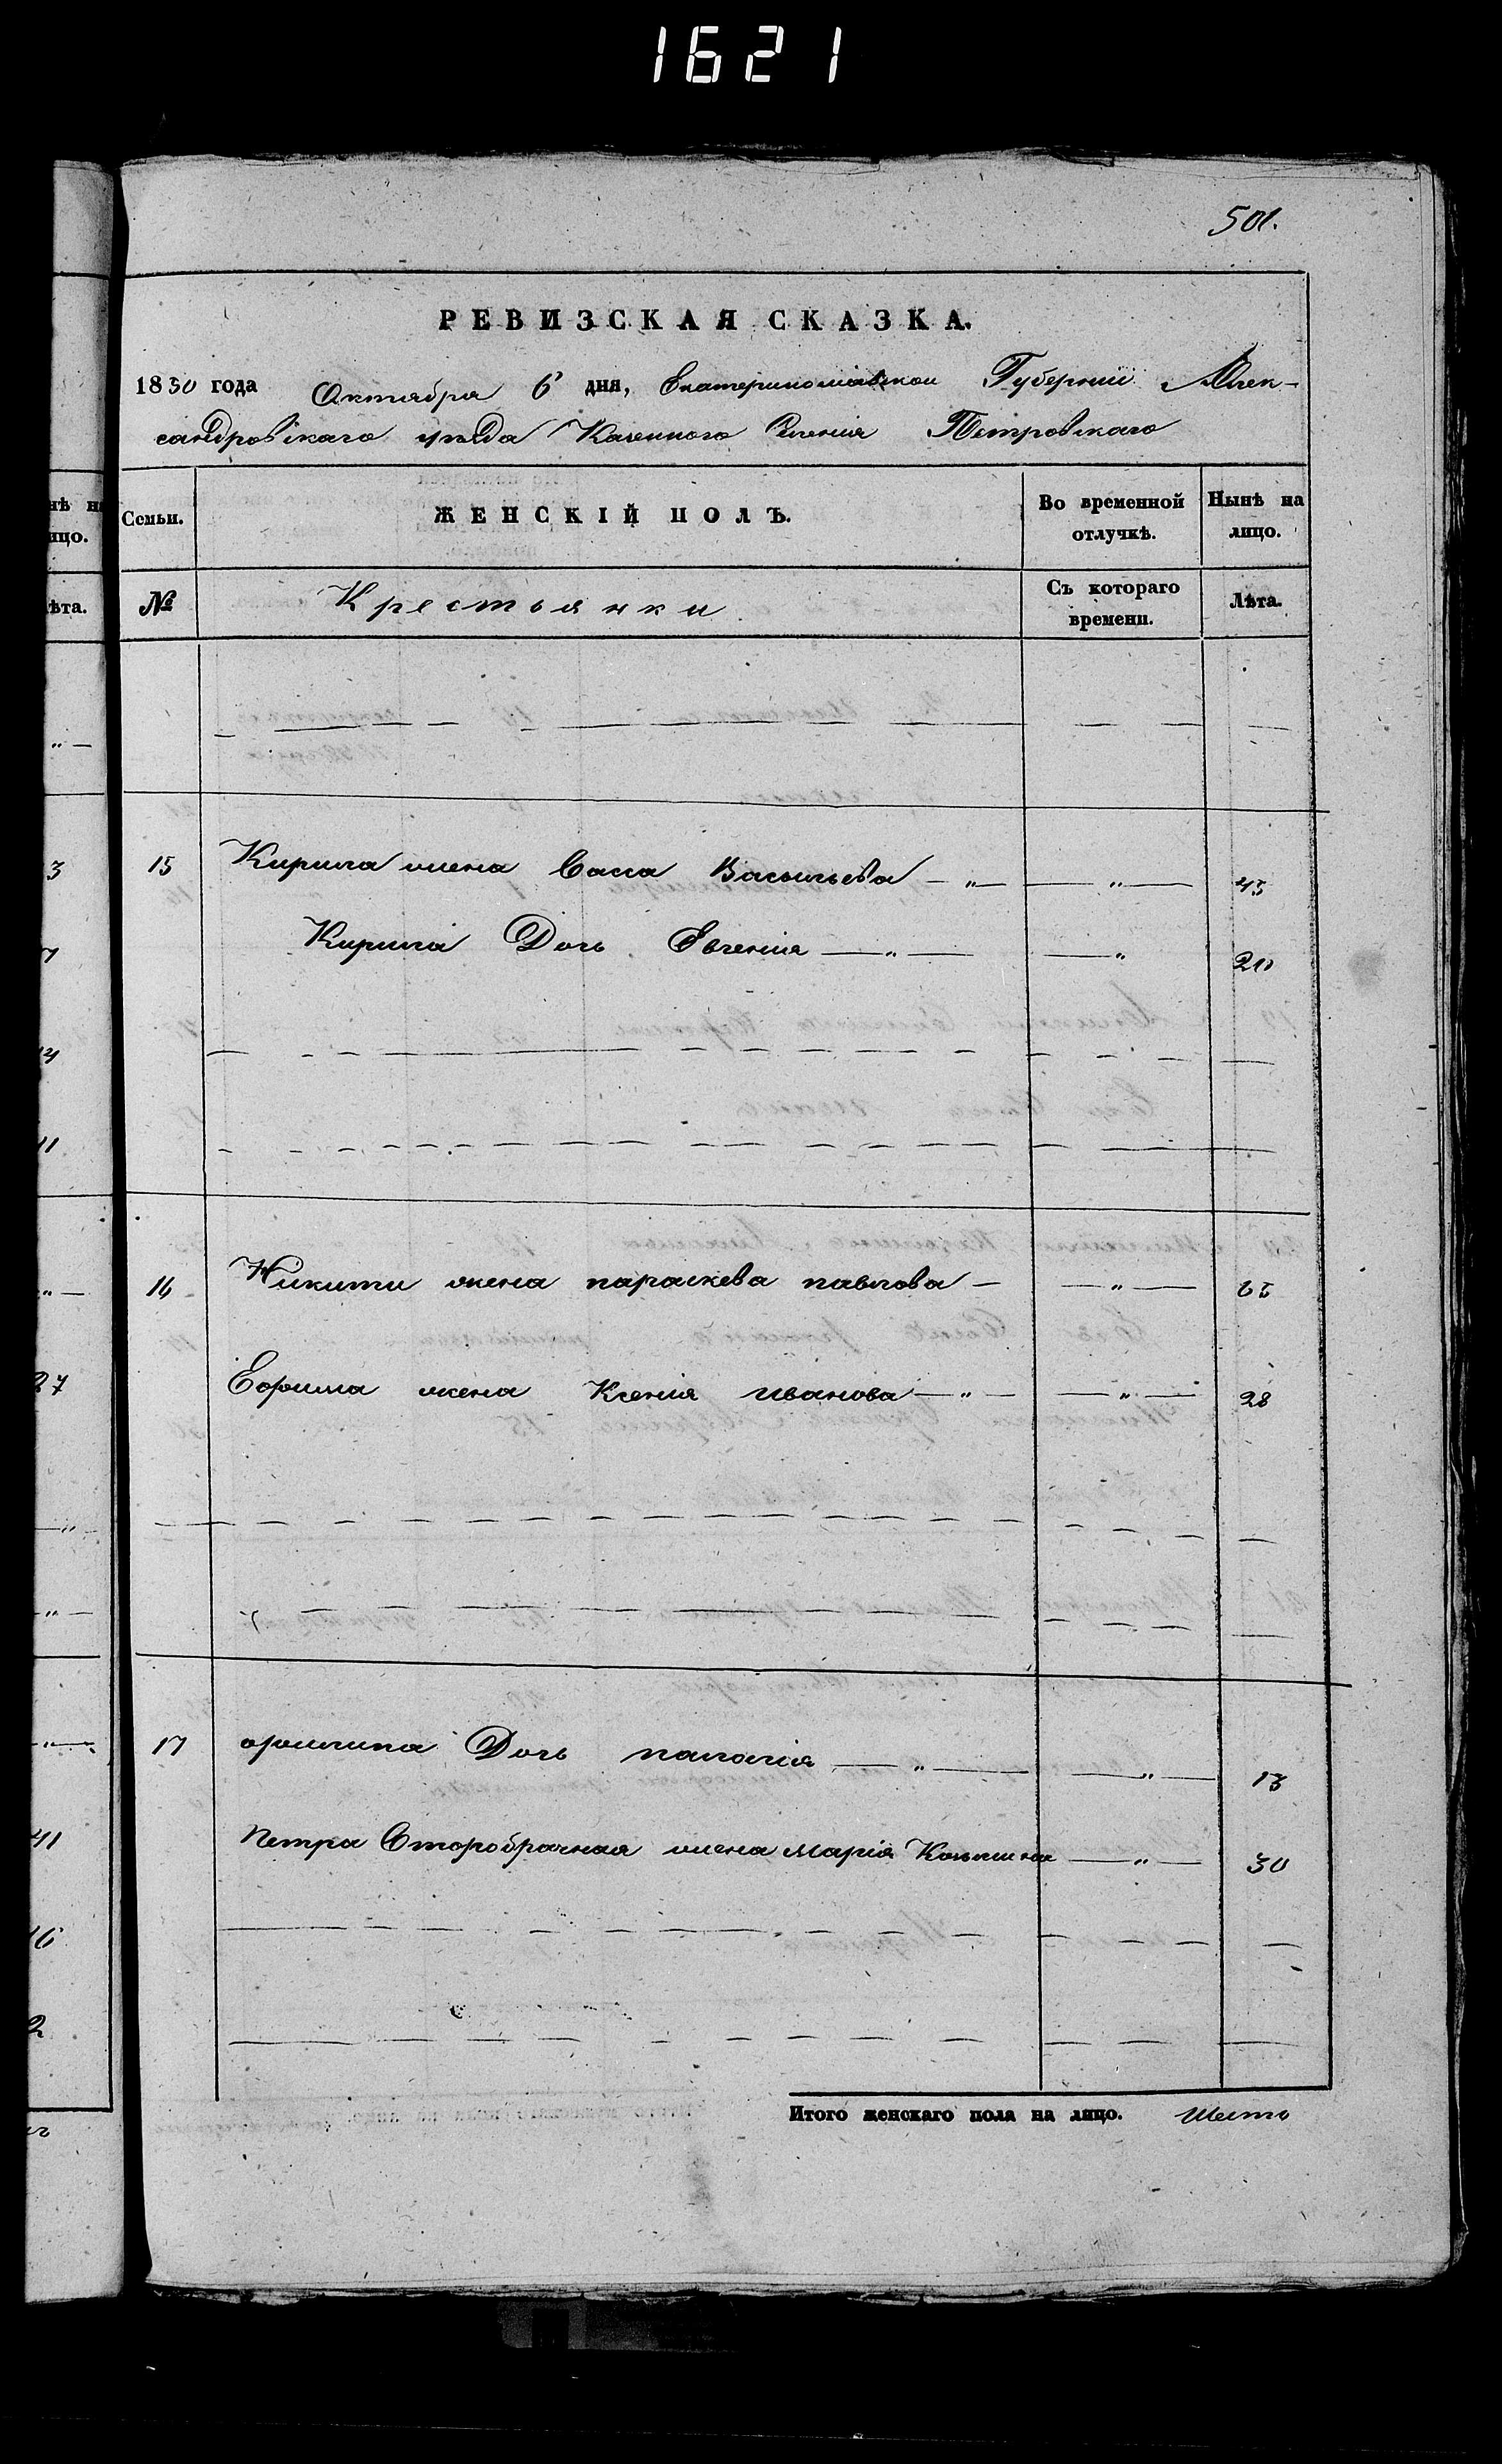 1621
501.
РЕВИЗСКАЯ СКАЗКА.
1850 года Октября 6 дня, Екатеринославской Губернии Алек-
сандровскаго уезда Казенного Селения Петровскаго
Семьи.
ЖЕНСКІЙ ПОЛЪ.
Во временной отлучкѣ.
Нынѣ на лицо.
№
Крестьянки
Съ котораго времени.
Лѣта.
15 Кирила жена Васса Васильева — „ — — „ — 45
Кирила Дочь Евгения — „ — — „ 20
16 Никиты жена параскева павлова — — „ —
Ефима жена Ксения иванова — „ — — „ — 28
17 Дочь палагія — „ — — „ — 13
Петра Второбрачная жена мария — „ — 30
Итого женскаго пола на лицо. Шесть